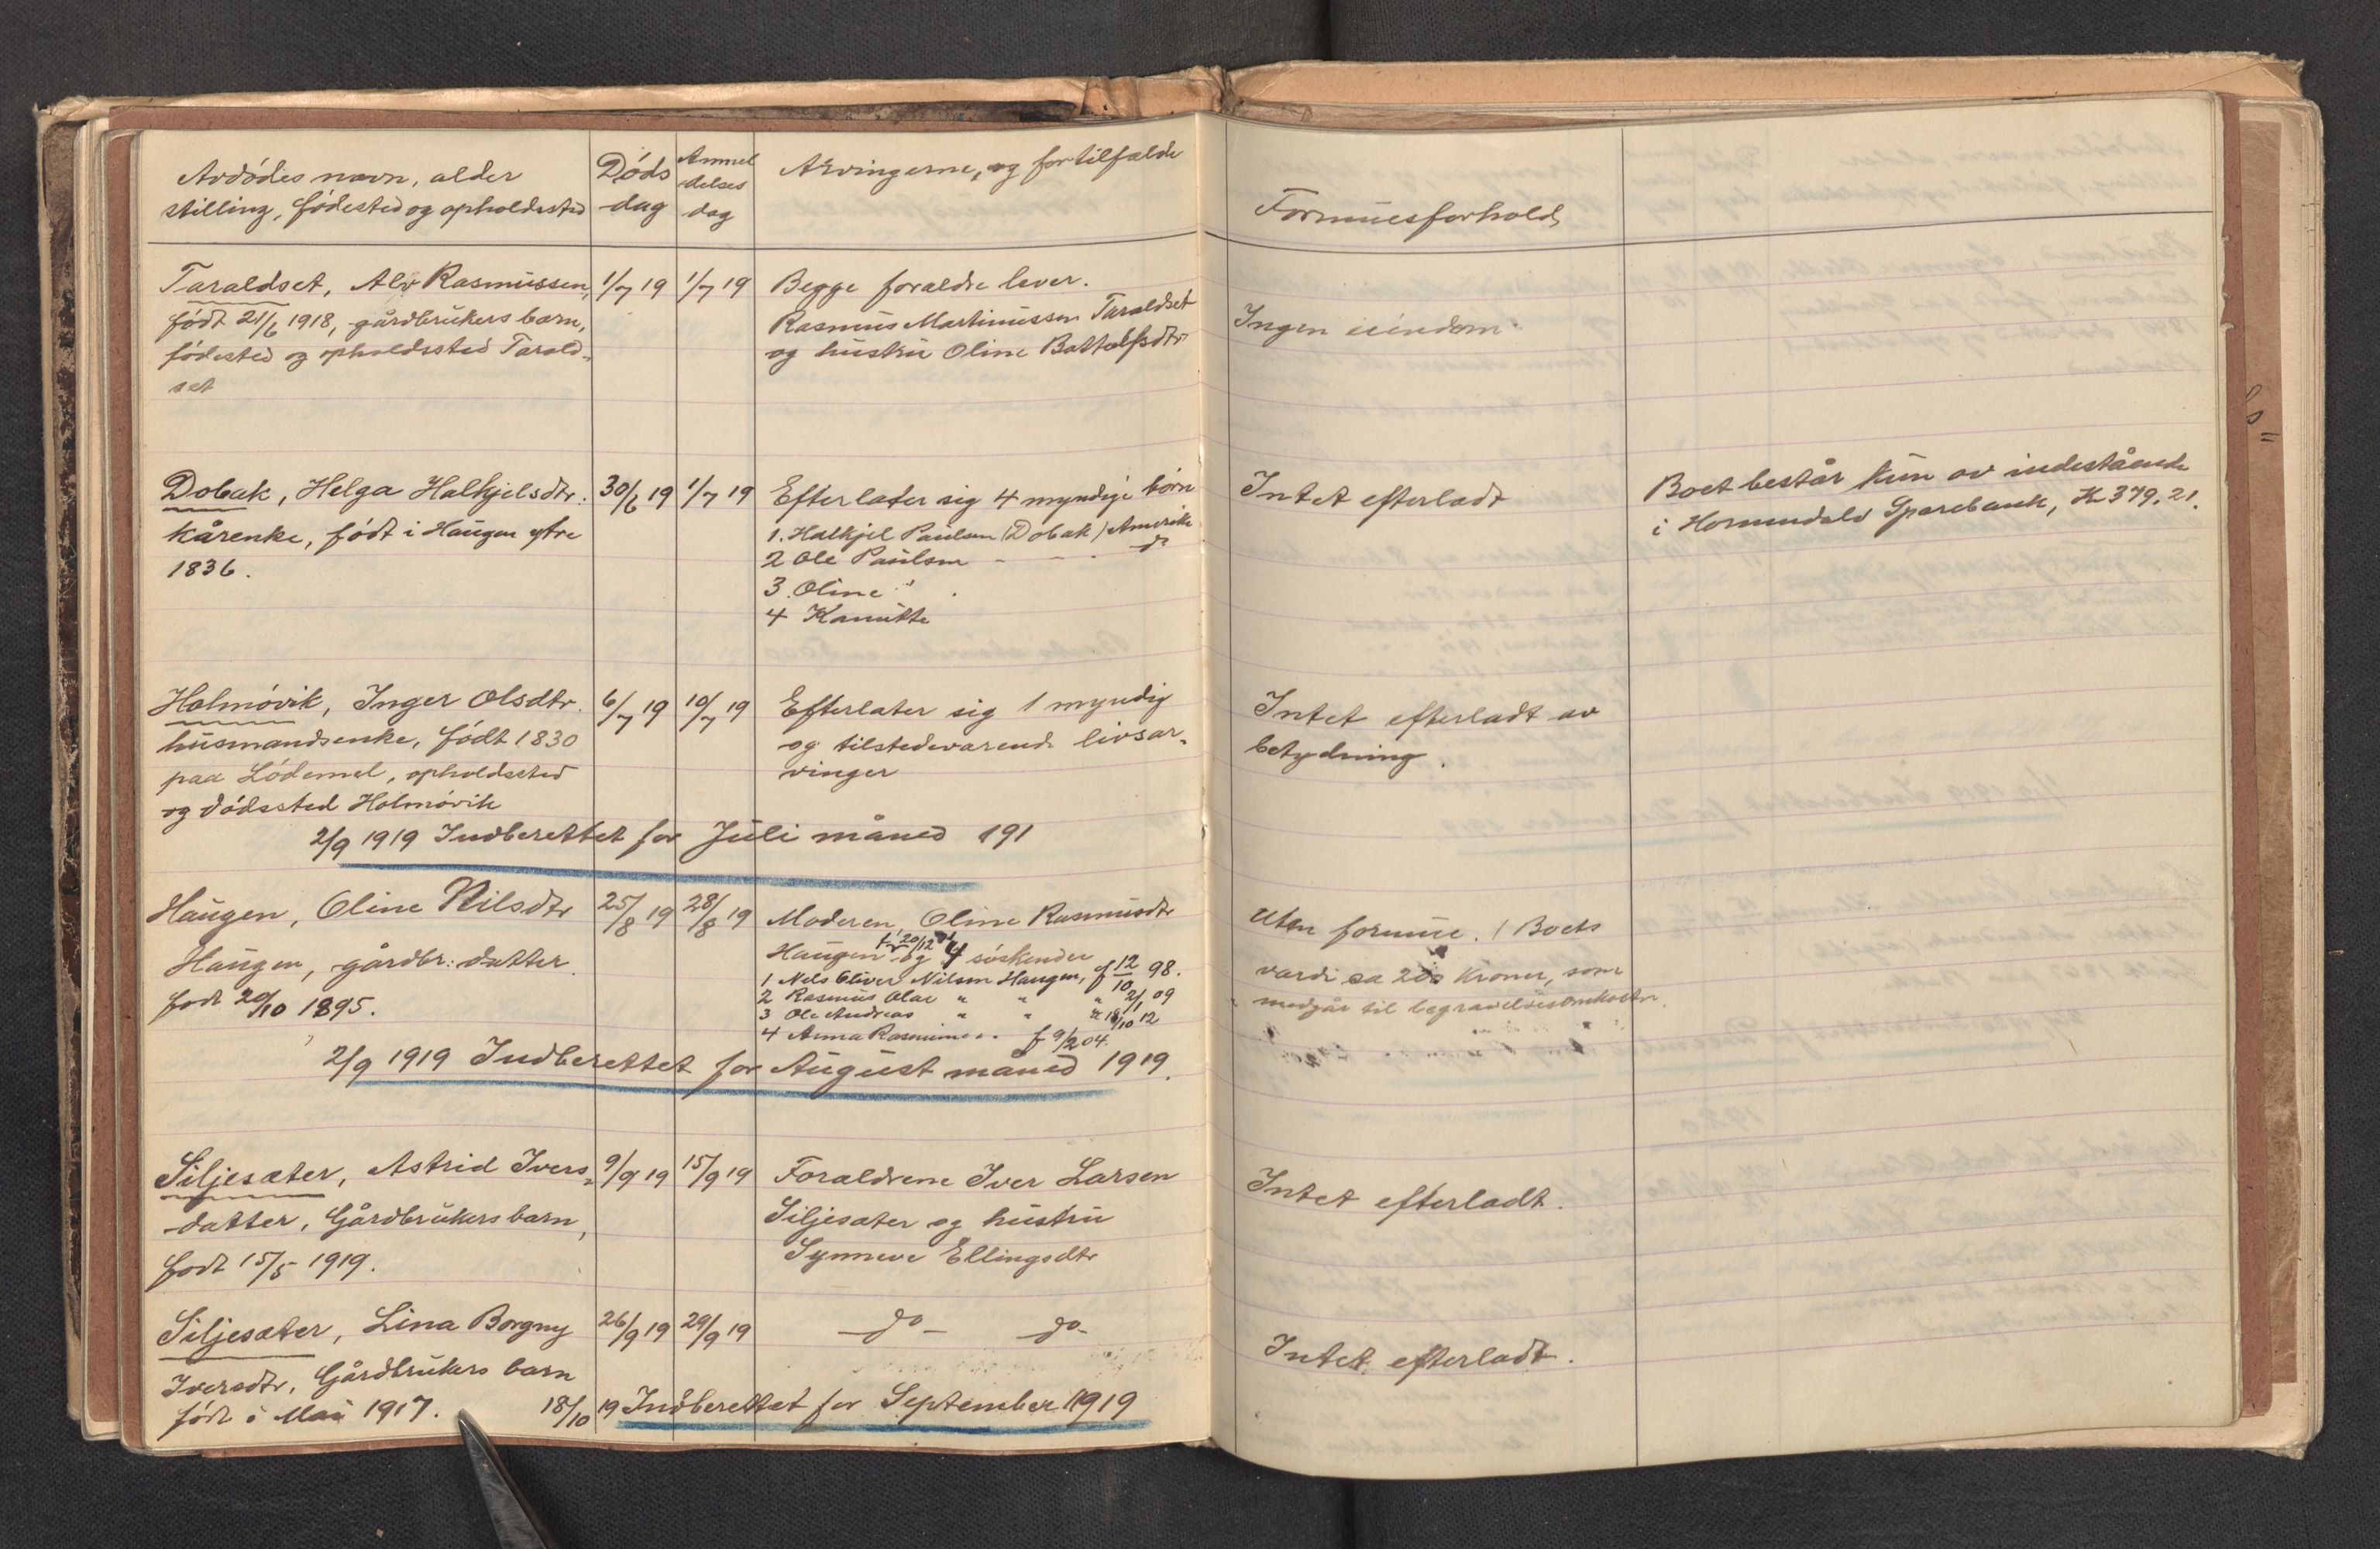 Avdödes navn, alder
stilling, födested og opholdssted
Döds
dag
Anmel
delses
dag
Arvingerne, og fortilfælde
Formuesforhold
Taraldset, Alv Rasmussen,
födt 21/6 1918, gårdbrukers barn,
födested og opholdssted Tarald-
set
1/7 19
1/7 19
Begge foraldre lever.
Rasmus Martinussen Taraldset
og hustru Oline Battolfsdtr
Ingen eiendom.
Dobak, Helga Halkjelsdtr.
Kårenke, födt i Haugen ytre
1836.
30/6 19
1/7 19
Efterlater sig 4 myndige börn
1. Halkjel Paulsen (Dobak) Amerika
2 Ole Paulsen - - - do
3. Oline "
4 Kanutte
Intet efterladt
Boet består kun av indestående
i Hornindals Sparebank, K 379,21.
Holmövik, Inger Olsdtr.
husmandsenke, födt 1830
paa Lödemel, opholdssted
og dödssted Holmövik
6/7 19
10/7 19
Efterlater sig 1 myndig
og tilstedevarende livsar-
vinger
Intet efterladt av
betydning.
2/9 1919 Indberettet for Juli måned 191
Haugen, Oline Nilsdtr
Haugen, gårdbr: datter
födt 20/10 1895.
25/8 19
28/8 19
Moderen, Oline Rasmusdtr
Haugen og 4 söskender
1 Nils Oliver Nilsen Haugen, f 12/10 98.
2 Rasmus Olai " " " 2/1 09
3 Ole Andreas " " " 18/10 12
4 Anna Rasmine " . f 9/2 04.
Uten formue. / Boets
vardi ca 200 Kroner, som
medgår til begravelsesomkostn.
2/9 1919 Indberettet for August måned 1919.
Siljesæter, Astrid Ivers-
datter, Gårdbrukers barn,
födt 15/5 1919.
9/9 19
15/9 19
Foraldrene Iver Larsen
Siljesæter og hustru
Synneve Ellingsdtr
Intet efterladt.
Siljesæter, Lina Borgny
Iversdtr, Gårdbrukers barn
födt i Mai 1917.
26/9 19
29/9 19
- do - - do -
Intet efterladt.
18/10 19 Indberettet for September 1919